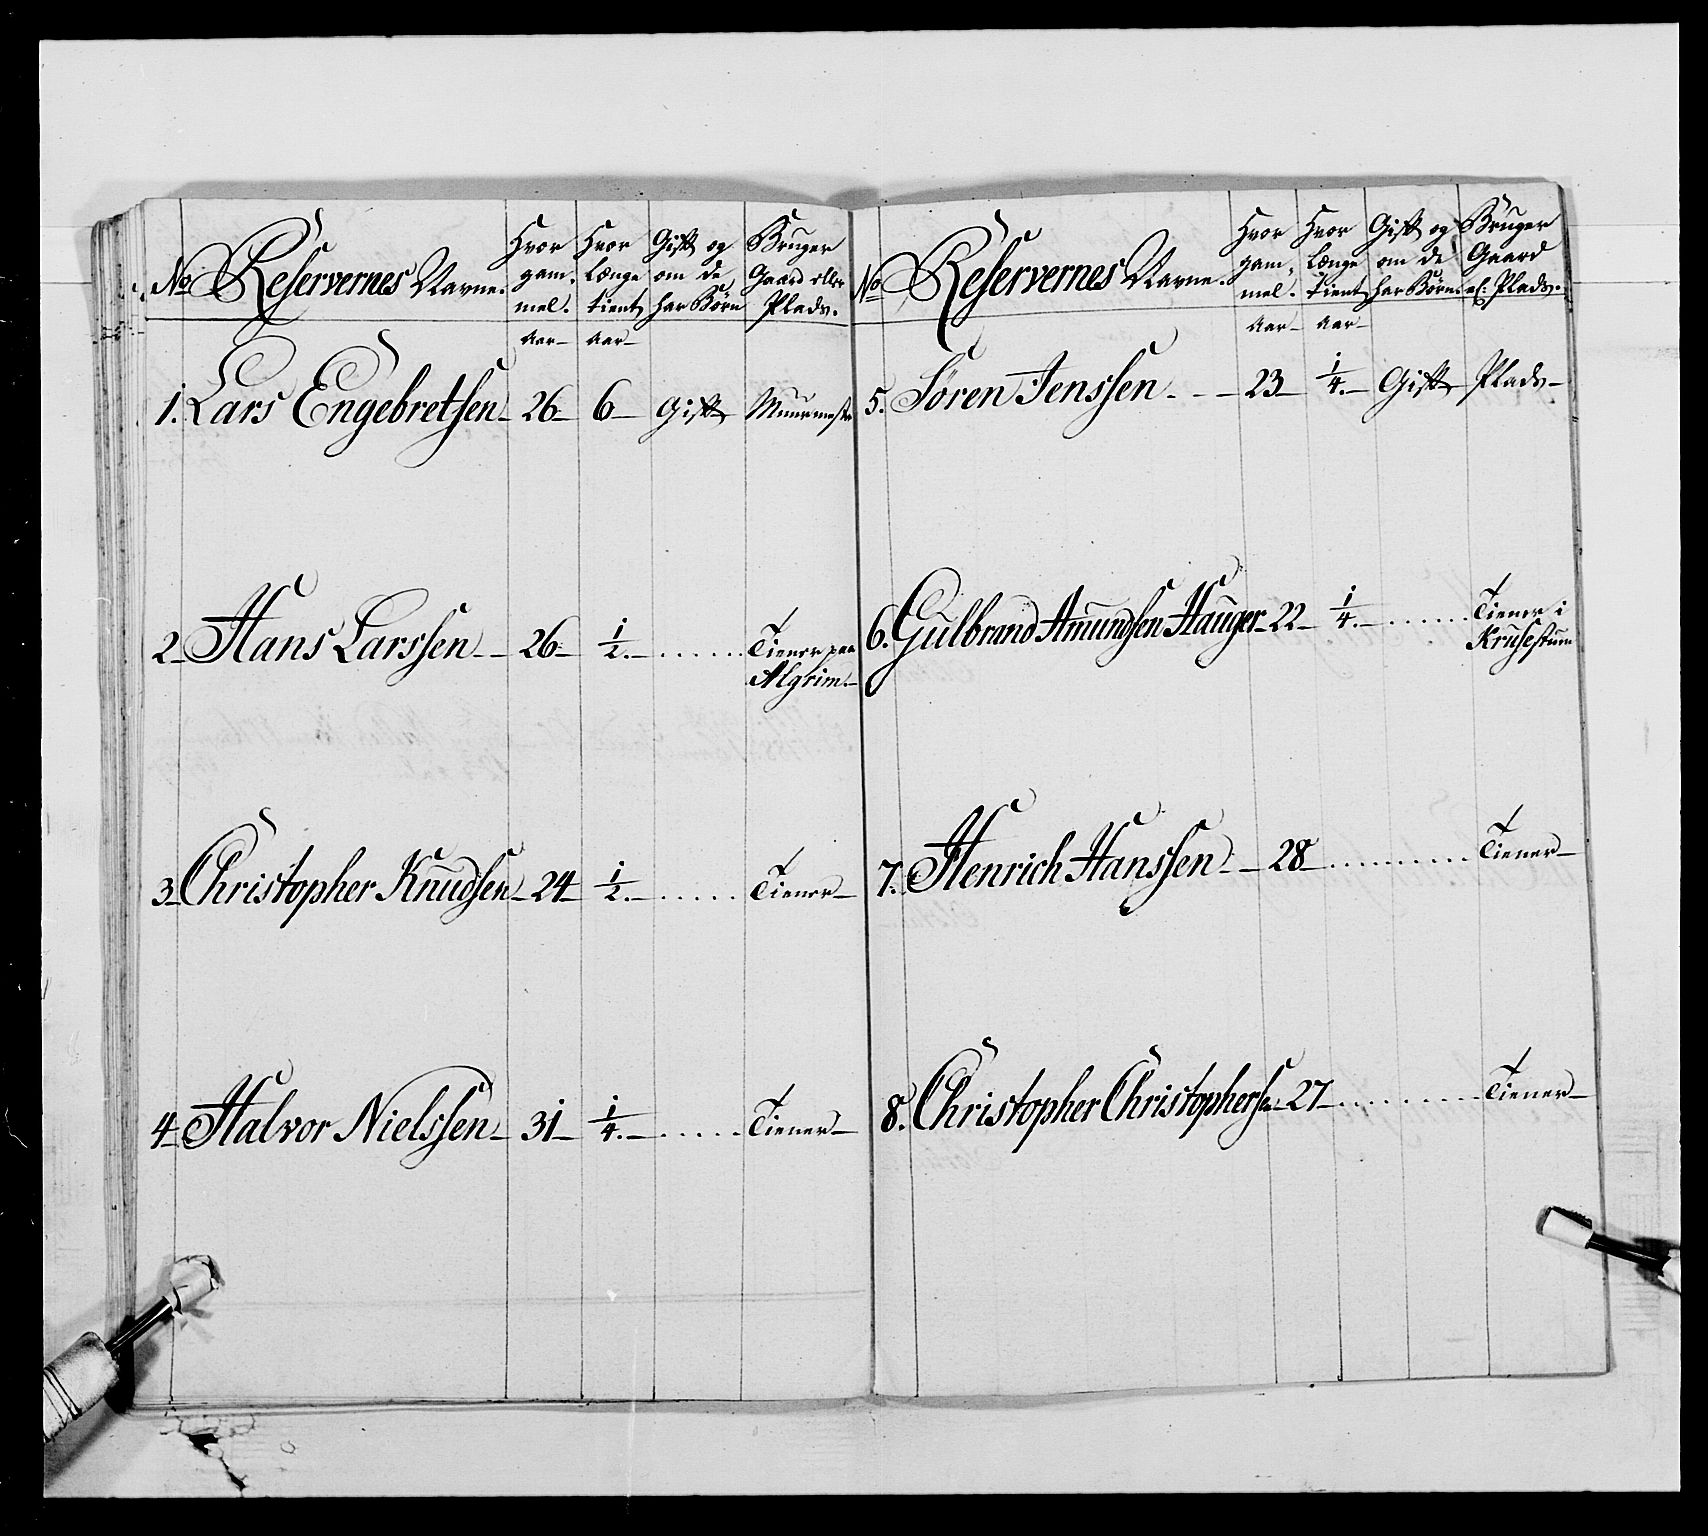 No Reservernes Navne. Hvor gammel. Hvor længe tient Gift og om de har Børn Bruger Gaard eller Plads.
Aar Aar
1. Lars Engebretsen 26 6 Gift Muurmester
2 Hans Larssen 26 1/2. Tiener paa
Algrim
3 Christopher Knudsen 24 1/2. Tiener
4 Halvor Nielssen 31 1/4. Tiener
No Reservernes Navne. Hvor gammel. Hvor længe tient Gift og om de har Børn. Bruger Gaard el: Plads.
Aar Aar
5. Søren Jenssen 23 1/4. Gift Plads
6. Gulbrand Amundsen Hauger 22 1/4. Tiener i
7. Henrich Hanssen 28 Tiener
8. Christopher Christophersen 27 Tiener